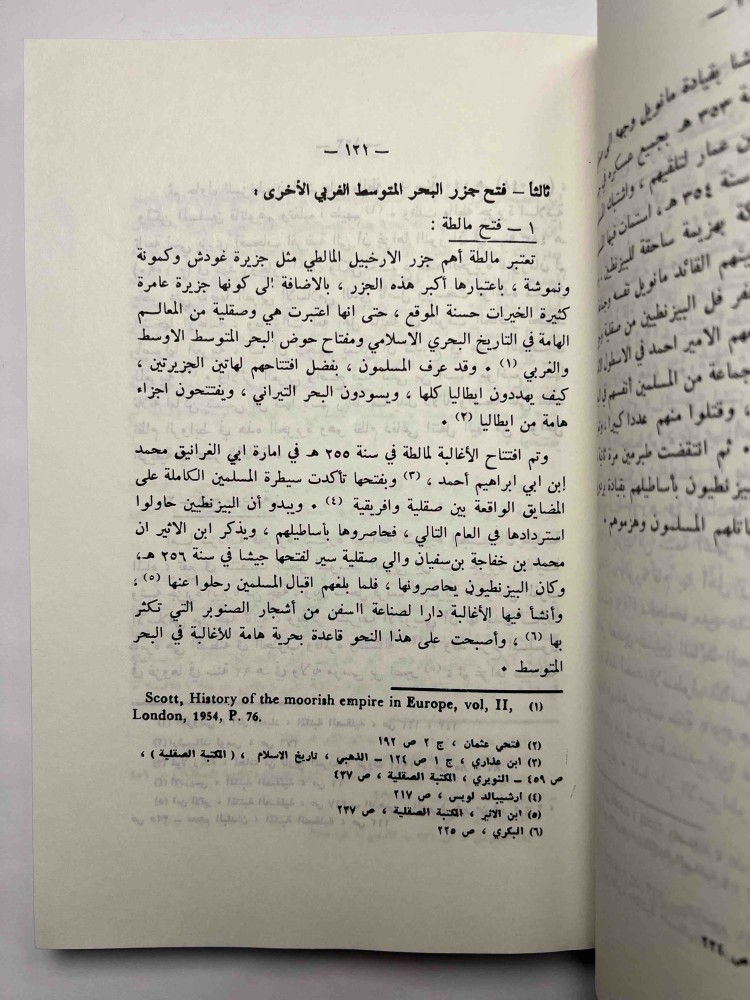 — ١٢١ —
ثالثاً — فتح جزر البحر المتوسط الغربي الأخرى :
١ — فتح مالطة :
تعتبر مالطة أهم جزر الارخبيل المالطي مثل جزيرة غودش وكمونة
ونموشة ، باعتبارها أكبر هذه الجزر ، بالاضافة إلى كونها جزيرة عامرة
كثيرة الخيرات حسنة الموقع ، حتى انها اعتبرت هي وصقلية من المعالم
الهامة في التاريخ البحري الاسلامي ومفتاح حوض البحر المتوسط الاوسط
والغربي (١) . وقد عرف المسلمون ، بفضل افتتاحهم لهاتين الجزيرتين ،
كيف يهددون ايطاليا كلها ، ويسودون البحر التيراني ، ويفتتحون اجزاء
هامة من ايطاليا (٢) .
وتم افتتاح الأغالبة لمالطة في سنة ٢٥٥ هـ في امارة ابي الغرانيق محمد
إبن ابي ابراهيم أحمد ، (٣) وبفتحها تأكدت سيطرة المسلمين الكاملة على
المضايق الواقعة بين صقلية وافريقية (٤) . ويبدو أن البيزنطيين حاولوا
استردادها في العام التالي ، فحاصروها بأساطيلهم ، ويذكر ابن الاثير ان
محمد بن خفاجة بن سفيان والي صقلية سير لفتحها جيشا في سنة ٢٥٦ هـ،
وكان البيزنطيون يحاصرونها ، فلما بلغهم اقبال المسلمين رحلوا عنها (٥) ،
وأنشأ فيها الأغالبة دارا لصناعة االسفن من أشجار الصنوبر التي تكثر
بها (٦) ، وأصبحت على هذا النحو قاعدة بحرية هامة للأغالبة في البحر
المتوسط .
(١) Scott, History of the moorish empire in Europe, vol, II,
London, 1954, P. 76.
(٢) فتحي عثمان ، ج ٢ ص ١٩٢
(٣) ابن عذاري ، ج ١ ص ١٢٤ — الذهبي ، تاريخ الاسلام ، ( المكتبة الصقلية ) ،
ص ٤٥٩ — النويري ، المكتبة الصقلية ، ص ٤٣٧
(٤) ارشيبالد لويس ، ص ٢١٧
(٥) ابن الاثير ، المكتبة الصقلية ، ص ٢٣٧
(٦) البكري ، ص ٢٢٥
بقيادة مانويل
٣٥٣ هـ بجميع
عمار لتلقيهم ،
سنة ٣٥٤ هـ، استمات فيها
بهزيمة ساحقة للبيزنطيين
القائد مانويل نفسه
فل البيزنطيين من صقلية
الامير احمد في الاسطول
جماعة من المسلمين أنفسهم في
، وقتلوا منهم عددا كبيرا،
. ثم انتقضت طبرمين مرة ثانية
بأساطيلهم بقيادة
المسلمون وهزموهم .
ص ٢٢٤